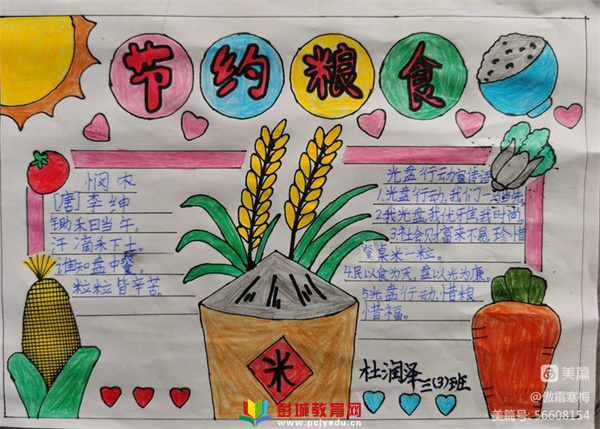 节约粮食
悯农
[唐]李绅
锄禾日当午,
汗滴禾下土。
谁知盘中餐,
粒粒皆辛苦。
光盘行动宣传语
1.光盘行动,我们一先
2.我光盘我我时尚。
3.社会财富来不易珍惜
餐桌米一粒。
4.民以食为天,盘以光为廉。
5.光盘行动,惜粮
惜福。
米
杜润泽三(3)班
彭城教育网
www.pcjyedu.cn
美篇
@傲霜寒梅
美篇号:56608154